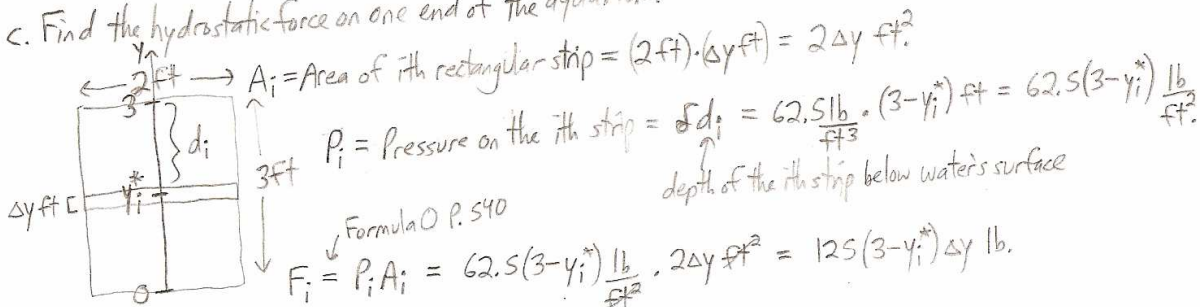 c. Find the hydrostatic force on one end of the
y
2ft
A_i = Area of ith rectangular strip = (2ft)·(Δy ft) = 2Δy ft².
3
d_i
P_i = Pressure on the ith strip = δd_i = 62.5 lb/ft³ · (3-y_i*) ft = 62.5(3-y_i*) lb/ft².
3ft
depth of the ith strip below water's surface
Δy ft [
y_i*
Formula ① P. 540
F_i = P_i A_i = 62.5(3-y_i*) lb/ft² · 2Δy ft² = 125(3-y_i*)Δy lb.
0